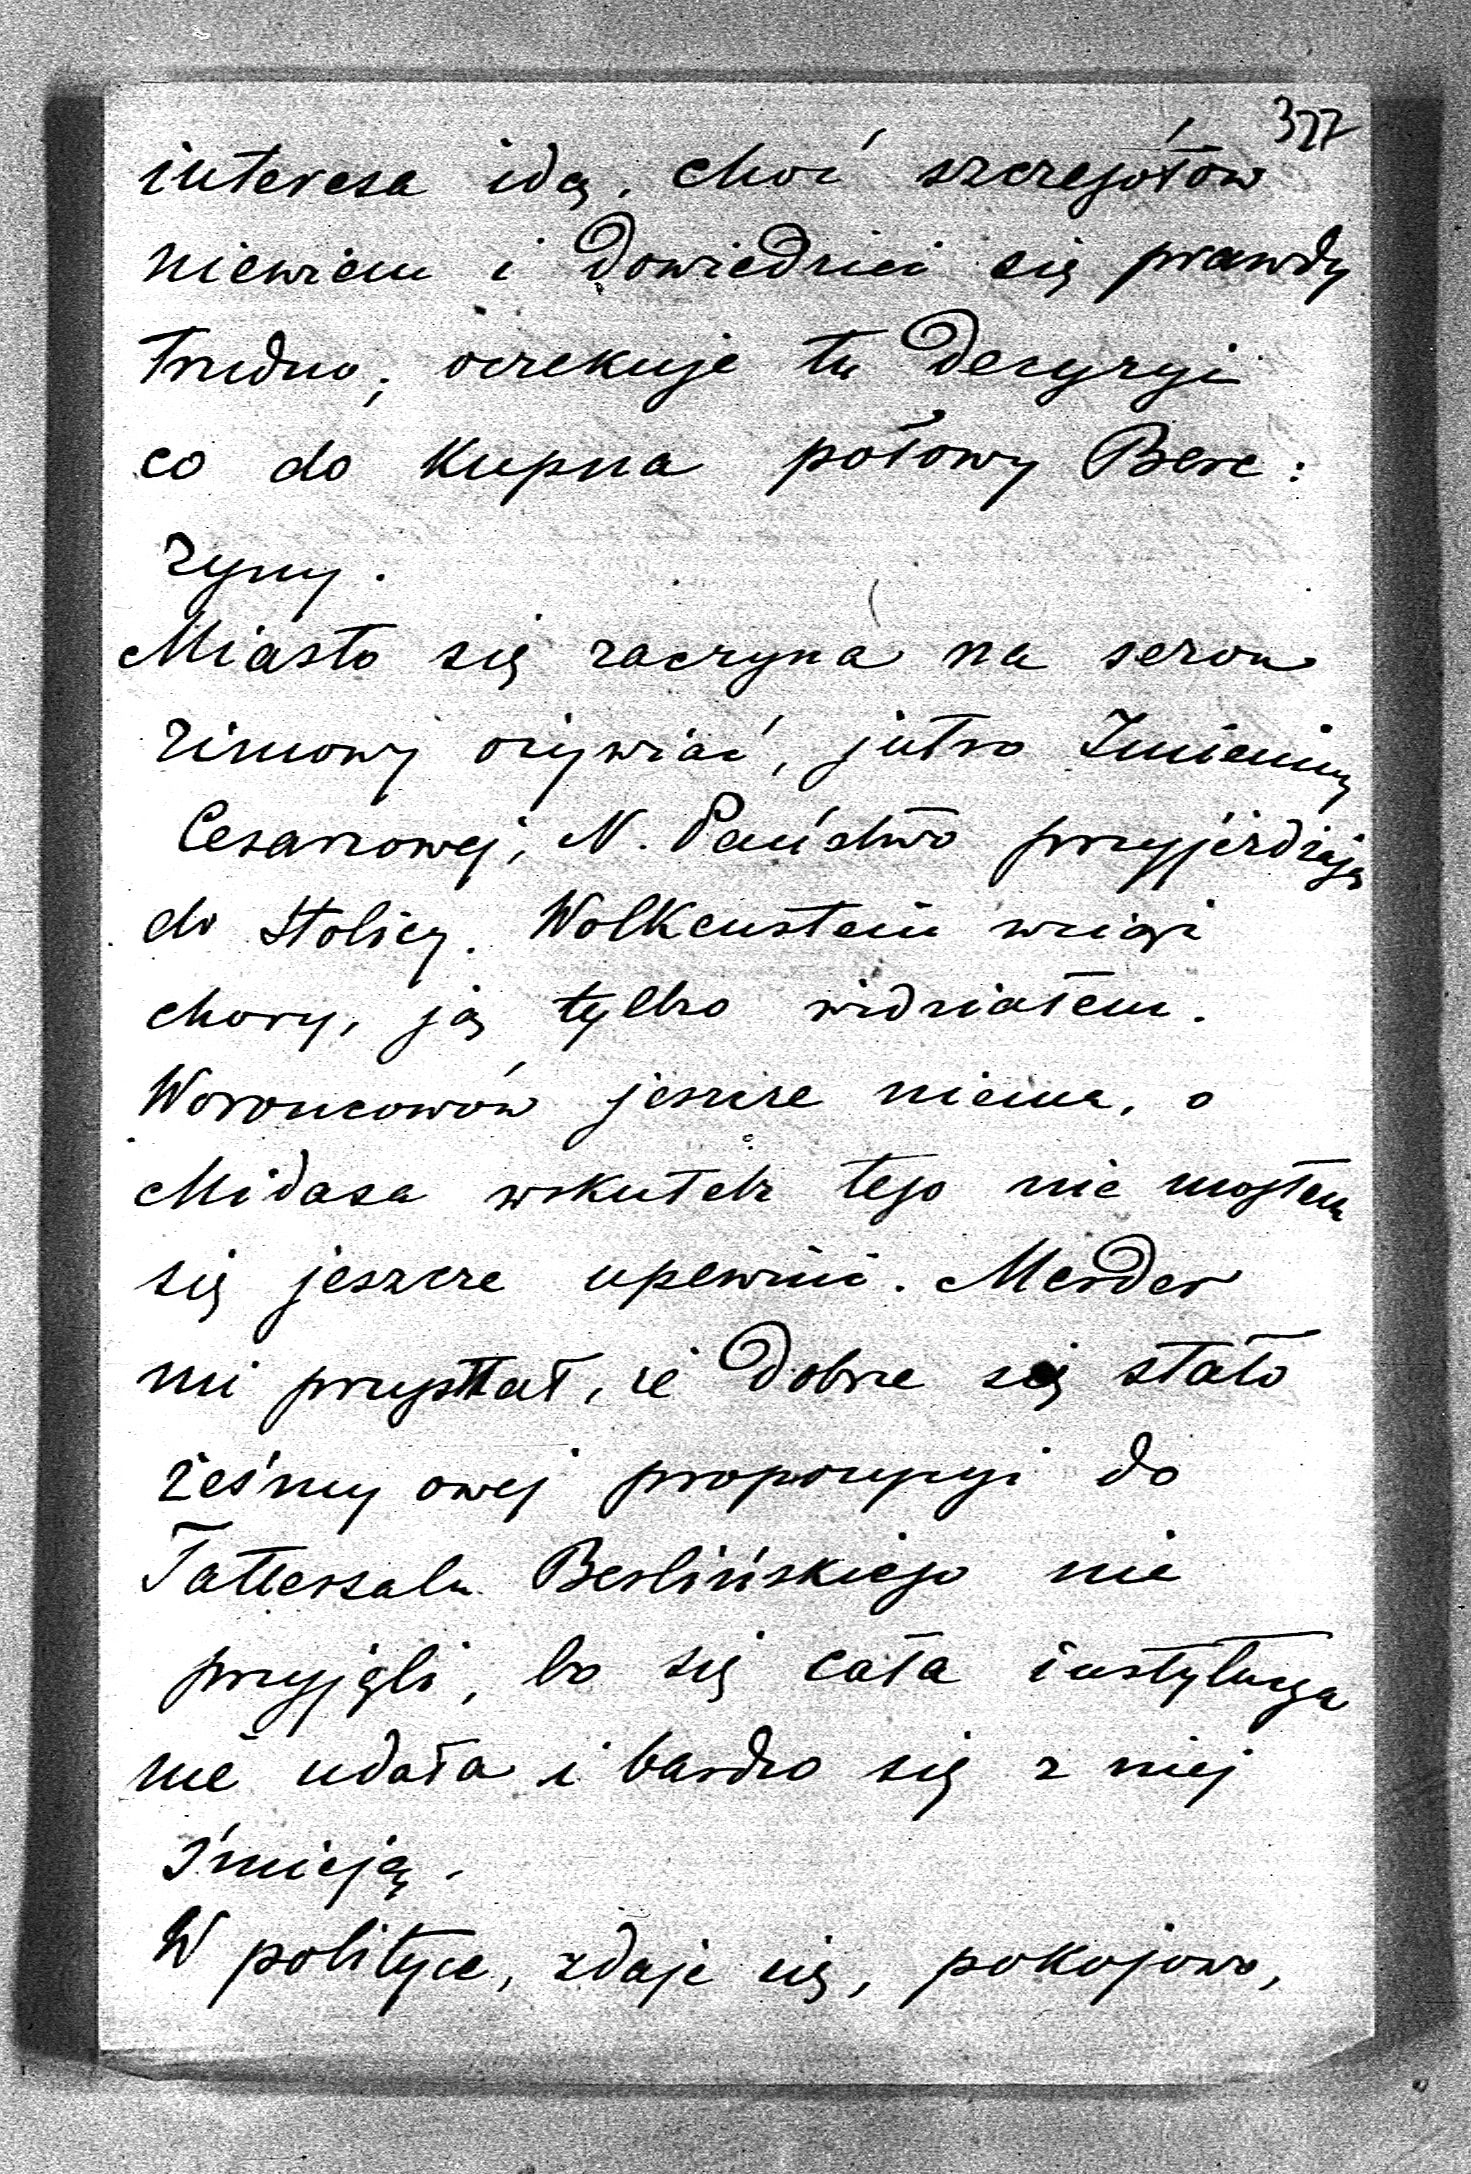 377
interesa idą, choć szczegółów
niewiem i dowiedzieć się prawdy
trudno; oczekuje tu decyzyi
co do kupna połowy Bere:
zyny.
Miasto się zaczyna na sezon
zimowy ożywiać, jutro Imieniny
Cesarzowej, N. Państwo przyjeżdżają
do Stolicy. Wolkenstein wciąż
chory, ją tylko widziałem.
Woroncowów jeszcze niema, o
Midasa wskutek tego nie mogłem
się jeszcze upewnić. Merder
mi przyznał, że dobrze się stało
żeśmy owej propozycyi do
Tattersalu Berlińskiego nie
przyjęli, bo się cała instytucya
nie udała i bardzo się z niej
śmieją.
W polityce, zdaje się, pokojowo,